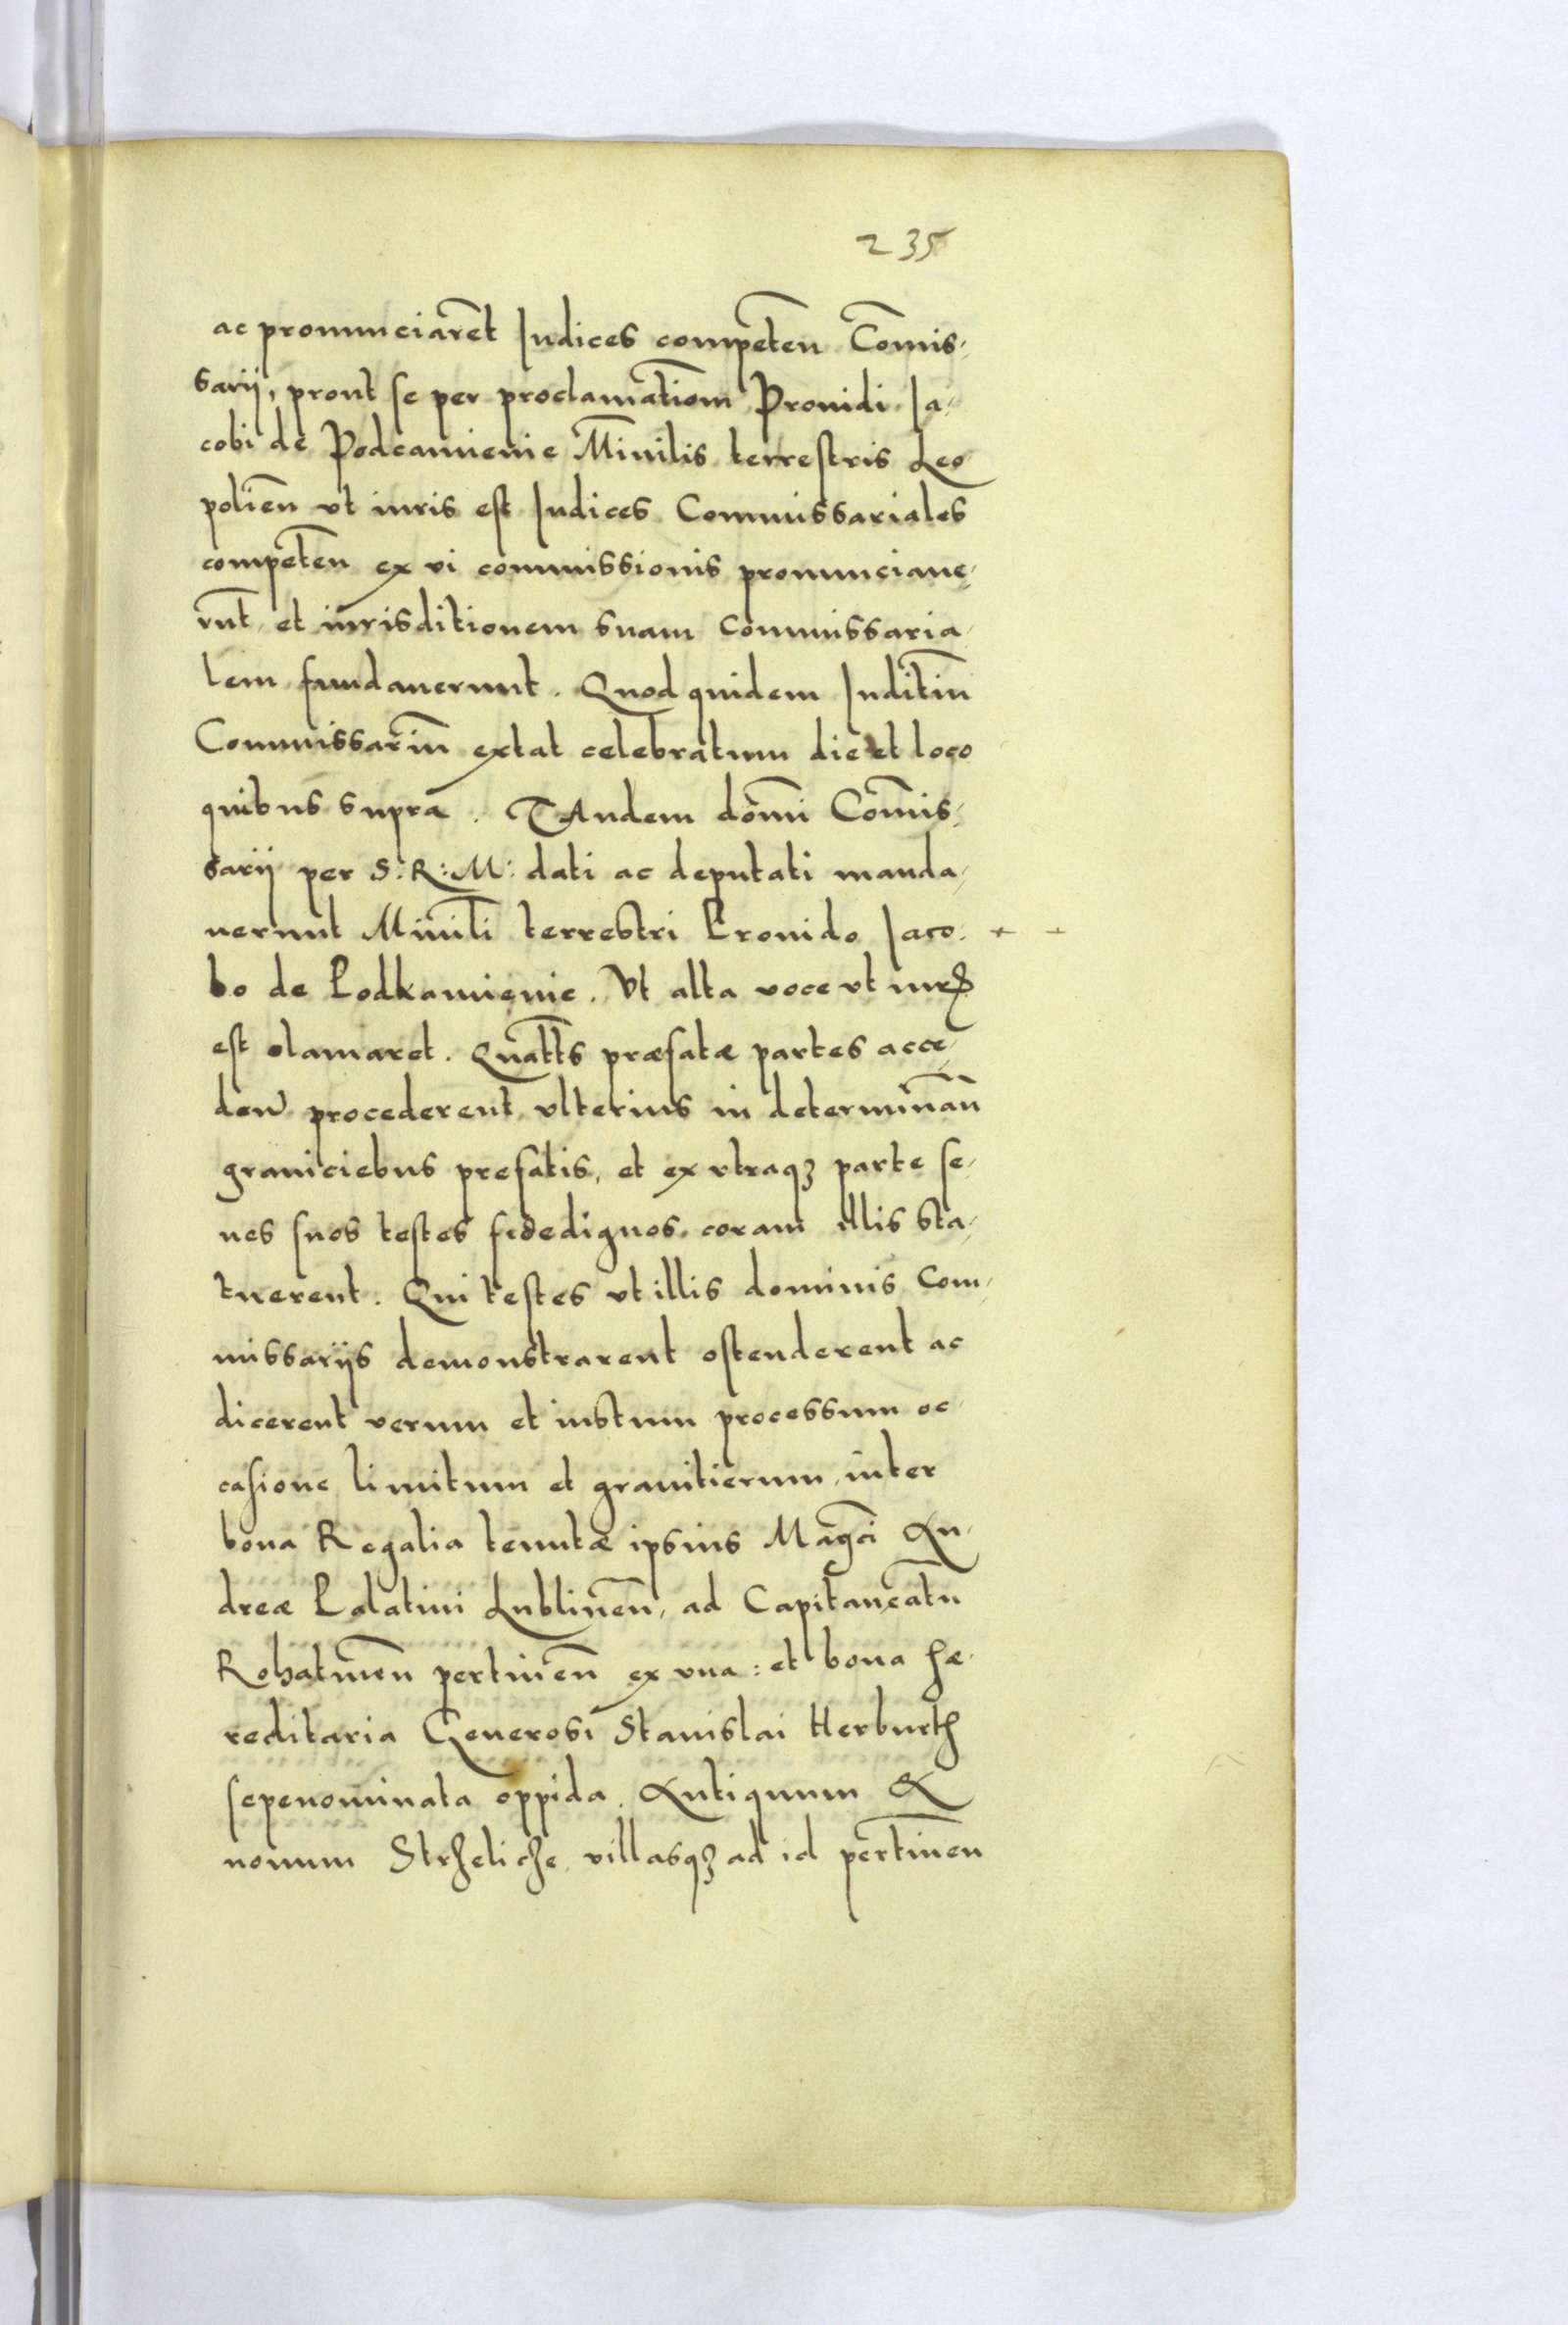 235
ac pronunciaret Iudices competen Comis-
sarij, prout se per proclamationm Prouidi Ia-
cobi de Podcamienie Minilis terrestris Leo
polien vt iuris est Iudices Commissariales
competen ex vi commissionis pronunciaue-
runt et iurisditionem suam Commissaria-
lem fundauerunt. Quod quidem Iuditiu
Commissariu extat celebratum die et loco
quibus supra. TAndem domi Comis-
sarij per S: R: M: dati ac deputati manda-
uerunt Minili terrestri Prouido Iaco-
bo de Podkamienie. Vt alta voce vt iuris
est clamaret. Quatts præfatæ partes acce-
den procederent vlterius in determinan
graniciebus prefatis, et ex vtraqꝫ parte se-
nes suos testes fidedignos coram illis sta-
tuerent. Qui testes vt illis dominis Com-
missarijs demonstrarent ostenderent ac
dicerent verum et iustum processum oc-
casione limitum et granitierum inter
bona Regalia tenutæ ipsius Magci An-
dreæ Palatini Lublinen, ad Capitaneatu
Rohatinen pertinen ex vna: et bona hæ-
reditaria Generosi Stanislai Herburth
sepenominata oppida. Antiquum &
nouum Strzeliche villasqꝫ ad id pertinen